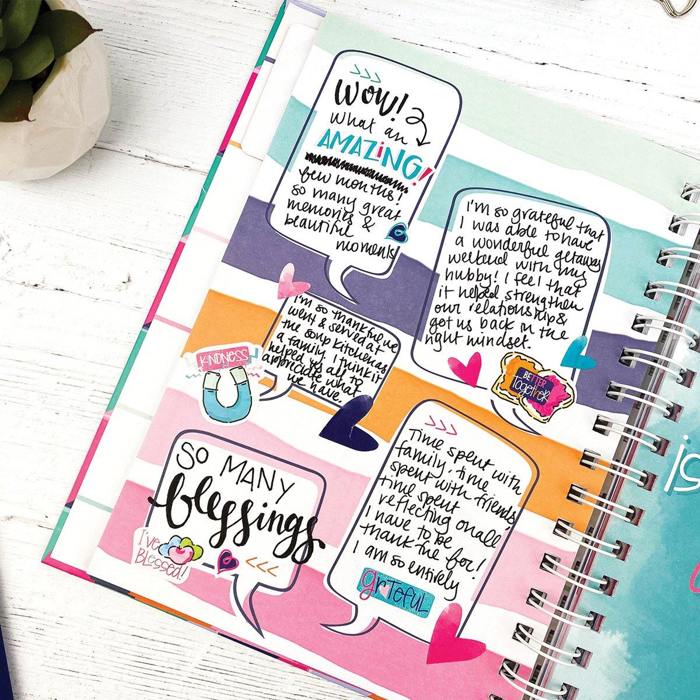 Wow!
what an
AMAZING!
few months!
so many great
memories &
beautiful
moments
I'm so grateful that
I was able to have
a wonderful getaway
weekend with my
hubby! I feel that
it helped strengthen
our relationship &
got us back in the
right mindset.
BETTER
Together
I'm so thankful we
went & served at
the soup kitchen as
a family. I think it
helped us all to
appreciate what
we have.
KINDNESS
SO MANY
blessings
I've
BLESSED!
Time spent with
family, time
spent with friends
time spent
reflecting on all
I have to be
thankful for!
I am so entirely
grateful